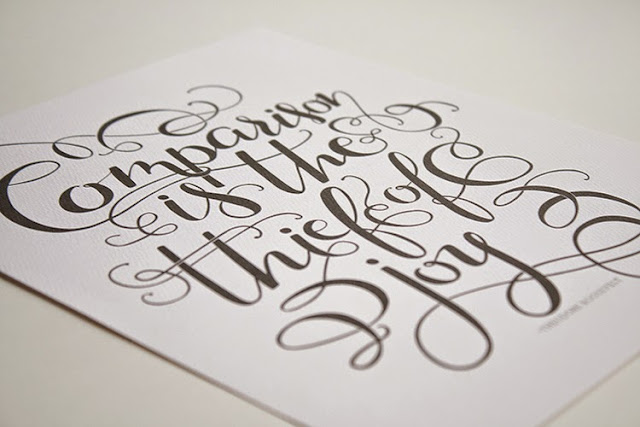 Comparison
is the
thief of
joy
-THEODORE ROOSEVELT